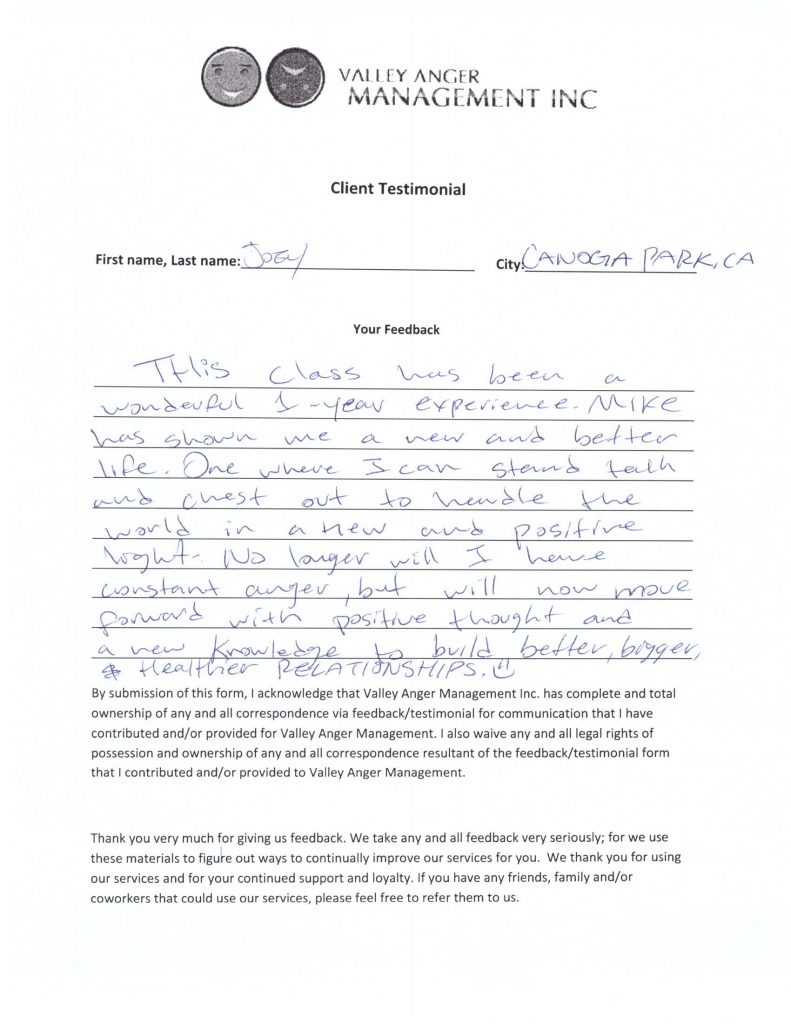 VALLEY ANGER
MANAGEMENT INC
Client Testimonial
First name, Last name: JOEY City: CANOGA PARK, CA
Your Feedback
THis class has been a
wonderful 1-year experience. MIKE
has shown me a new and better
life. One where I can stand talh
and chest out to handle the
world in a new and positive
light. No longer will I have
constant anger, but will now move
forward with positive thought and
a new knowledge to build better, bigger,
& Healthier RELATIONSHIPS.
By submission of this form, I acknowledge that Valley Anger Management Inc. has complete and total
ownership of any and all correspondence via feedback/testimonial for communication that I have
contributed and/or provided for Valley Anger Management. I also waive any and all legal rights of
possession and ownership of any and all correspondence resultant of the feedback/testimonial form
that I contributed and/or provided to Valley Anger Management.
Thank you very much for giving us feedback. We take any and all feedback very seriously; for we use
these materials to figure out ways to continually improve our services for you. We thank you for using
our services and for your continued support and loyalty. If you have any friends, family and/or
coworkers that could use our services, please feel free to refer them to us.